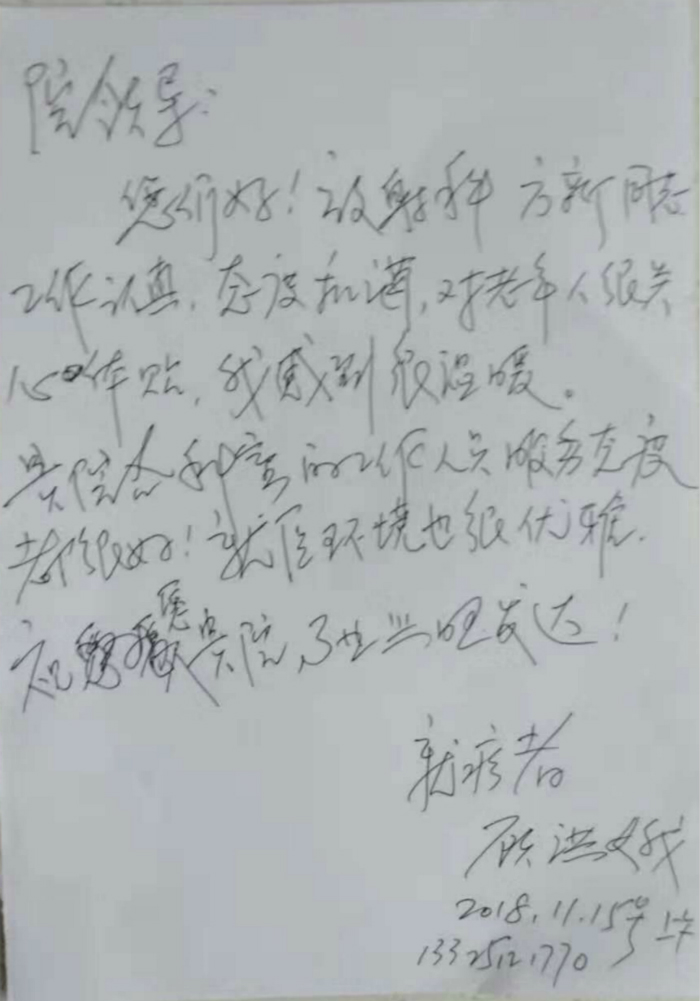 院领导：
您们好！放射科 方新同志
工作认真，态度和谐，对老年人很关
心体贴，我感到很温暖。
贵院各科室的工作人员服务态度
都很好！就医环境也很优雅.
祝 您 贵院，事业兴旺发达！
就诊者
顾洪娥
2018.11.15号上午
13325121770